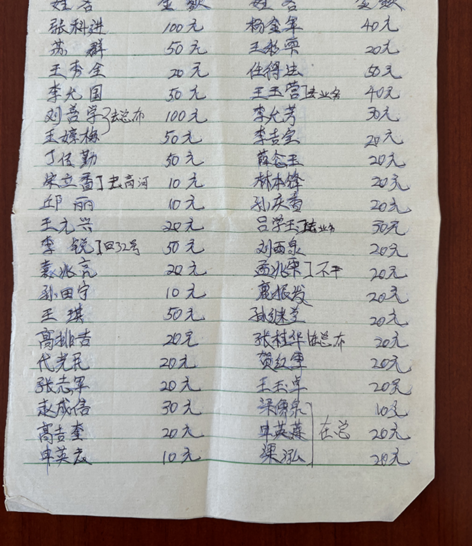 姓名 金额 姓名 金额
张科进 100元 杨金军 40元
苏群 50元 20元
王秀全 20元 任得法 50元
李光国 50元 王玉营 40元
刘善学 去总布 100元 李允芳 30元
王嫁梅 50元 李吉宝 20元
丁任勤 50元 20元
宋立香 去高河 10元 林本锋 20元
邱丽 10元 孙庆香 20元
王元兴 20元 吕学玉 50元
李锐 回32号 50元 刘西泉 20元
袁兆亮 20元 孟兆荣 不干 20元
孙田宁 10元 鹿振发 20元
王琪 50元 20元
高挑吉 20元 张桂华 去总布 20元
代光民 20元 贺红军 20元
张志军 20元 王玉卓 20元
赵成信 30元 10元
高吉奎 20元 申英莲 在总 20元
申英宏 10元 梁泓 20元